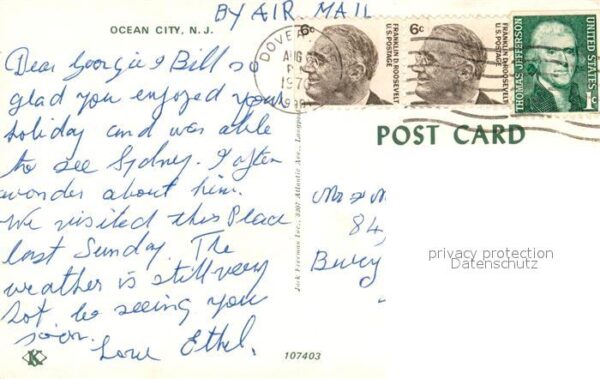 BY AIR MAIL
OCEAN CITY, N.J.
Dear Georgie & Bill so
glad you enjoyed your
holiday and was able
to see Sydney. I often
wonder about him.
We visited this Place
last Sunday. The
weather is still very
hot, be seeing you
soon.
Love Ethel.
K
107403
Jack Freeman Inc., 3207 Atlantic Ave., Longport
DOVER
AUG
PM
197
6c
FRANKLIN D. ROOSEVELT
U.S. POSTAGE
6c
FRANKLIN D. ROOSEVELT
U.S. POSTAGE
THOMAS JEFFERSON
UNITED STATES
1c
POST CARD
Mr & M
84
privacy protection
Datenschutz